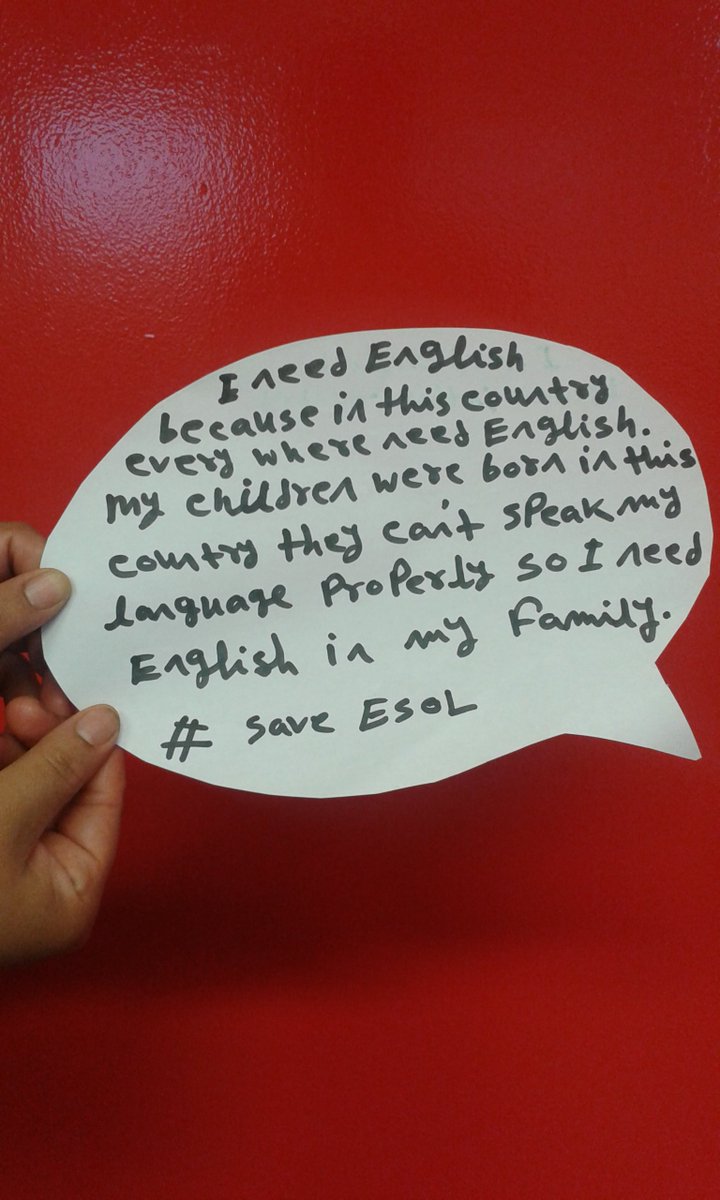 I need English
because in this country
every where need English.
my children were born in this
country they can't speak my
language properly so I need
English in my family.
# save ESOL